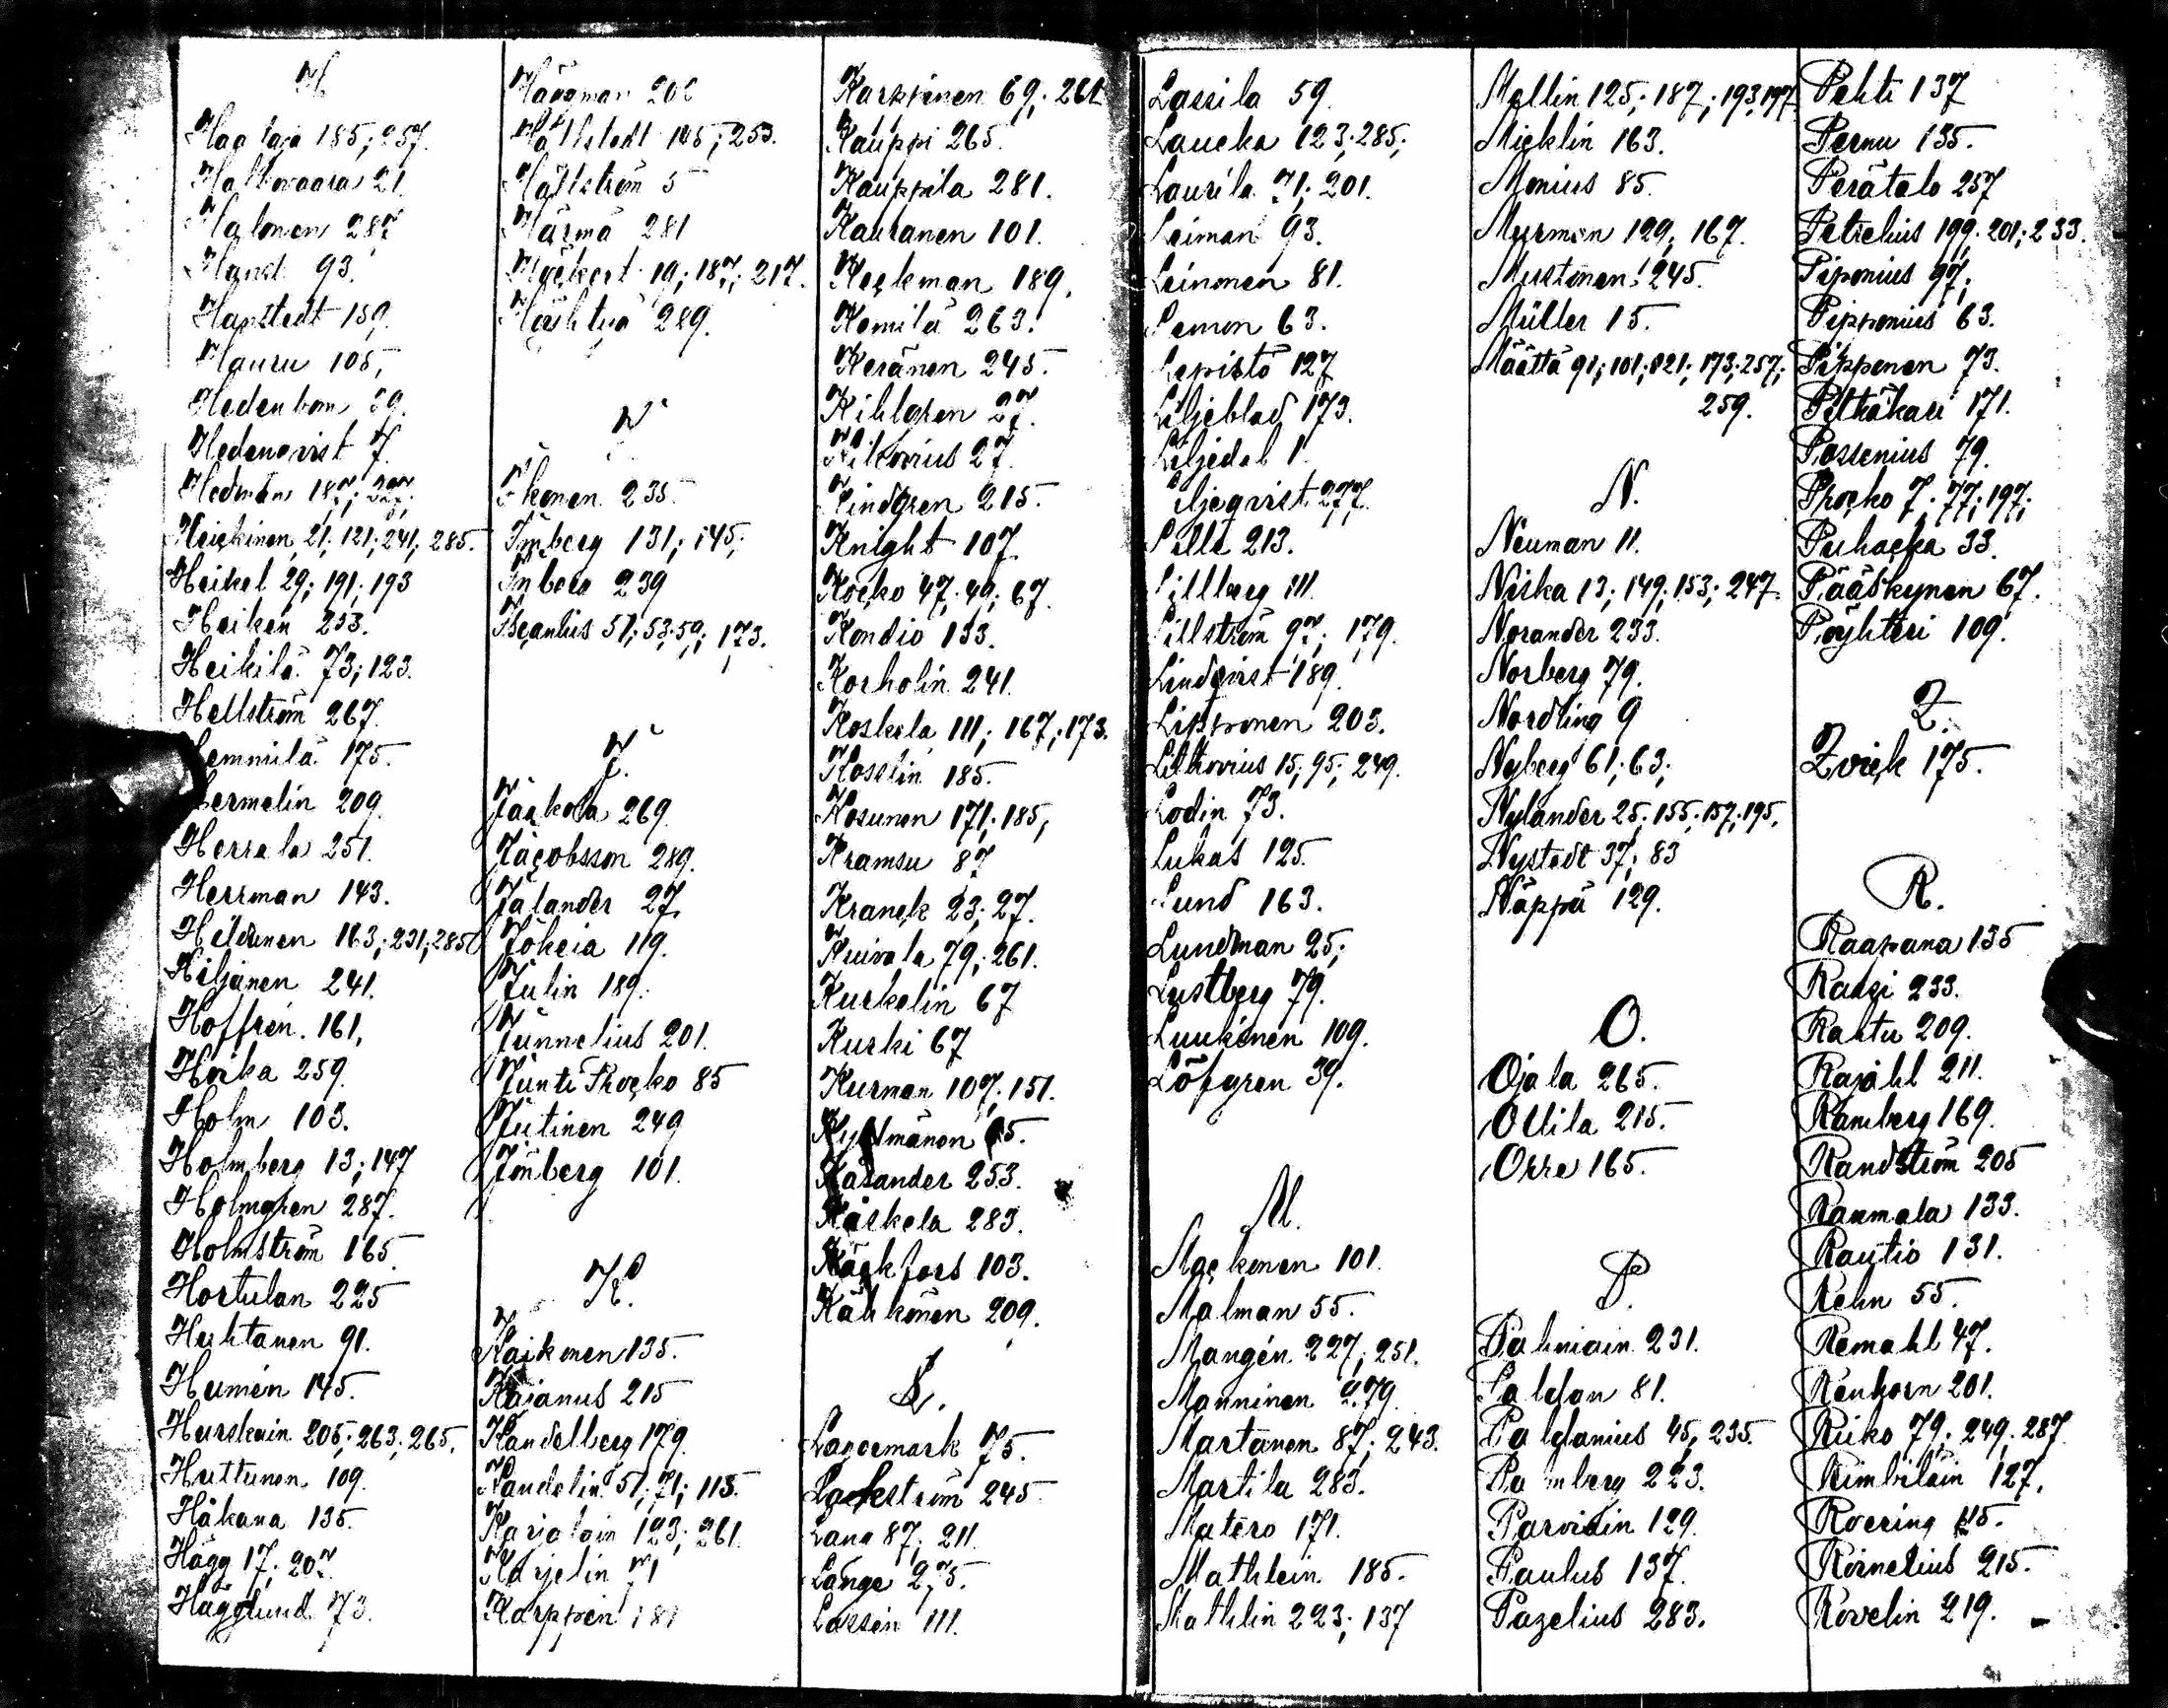 H
Haataja 185; 257.
Haltovaara 21
Halonen 287
Hand 93.
Hanstedt 189.
Hauru 105,
Hedenbom 39.
Hedenqvist 7.
Hedman 187;
Heickinen 21; 121; 241; 285.
Heikel 29; 191; 193
Heikén 253.
Heikilä 73; 123.
Hellström 267.
Hemmilä 175.
Hermelin 209.
Herrala 251.
Herrman 143.
Hildunen 163; 231; 285
Hiljanen 241.
Hoffrén 161,
Hoika 259.
Holm 103.
Holmberg 13; 147
Holmgren 287.
Holmström 165
Hortulan 225
Huhtanen 91.
Humén 145.
Hurskain 205; 263; 265.
Huttunen 109.
Håkana 135.
Hägg 17; 207
Hägglund 73.
Häggman
Hällstedt 145; 253.
Hällström 5
Härmä 281
Höckert 19; 187; 217.
Höyhtyä 289.
I
Ikonen 235.
Imberg 131; 145;
Inberg 239
Iscanius 51; 53; 59; 173.
J.
Jaakola 269.
Jacobsson 289.
Jalander 27.
Jokeia 119.
Julin 189.
Junnelius 201.
Junti Procko 85
Jutinen 249
Jönberg 101.
K.
Kaikonen 135.
Kajanus 215
Kandelberg 179.
Kandelin 51; 71; 115.
Karjalain 123; 261.
Karjelin 71
Karppén 181
Karppinen 69; 261
Kauppi 265.
Kauppila 281.
Kauranen 101.
Keckman 189.
Kemilä 263.
Keränen 245.
Kihlgren 27.
Kikovius 27.
Kindgren 215.
Knight 107
Kocko 47; 49; 67.
Kondio 133.
Korholin 241.
Koskela 111; 167; 173.
Kosslin 185.
Kosunen 171; 185;
Kramsu 87
Kranck 23; 27.
Kruivala 79; 261.
Kurkelin 67
Kurki 67
Kurman 107; 151.
Kyllmänen 15.
Kåsander 253.
Käckela 283.
Käckfors 103.
Kähkönen 209.
L.
Lagermark 75.
245.
Lang 87; 211.
Lange 275.
Lassén 111.
Lassila 59.
Laucka 123; 285;
Laurila 71; 201.
Leiman 93.
Leinonen 81.
Lemon 63.
Lepistö 127
Liljeblad 173.
Liljedal 1.
Liljeqvist 277.
Lille 213.
Lillberg 111.
Lillström 97; 179.
Lindqvist 189.
Lipponen 203.
Lithovius 15; 95; 249.
Lodin 73.
Lukas 125.
Lund 163.
Lundman 25;
Lustberg 79.
Luukinen 109.
Löfgren 39.
M.
Mackonen 101.
Malman 55.
Mangén 227; 251.
Manninen 279.
Martanen 87; 243.
Martila 283.
Matero 171.
Mathlein 185.
Mathlin 223; 137
Mellin 125; 187; 193, 197
Micklin 163.
Monius 85.
Murman 129; 167.
Mustonen 245.
Müller 15.
Määttä 91; 101; 121; 173; 257;
259.
N.
Neuman 11.
Niska 13; 149; 153; 247.
Norander 233.
Norberg 79.
Nordling 9
Nyberg 61; 63;
Nylander 25; 155; 157; 195.
Nystedt 37; 83
Näppä 129.
O.
Ojala 265.
Ollila 215.
Orre 165.
P.
Palmiain 231.
Paldan 81.
Paldanius 45; 235.
Palmberg 223.
Parviain 129.
Paulus 137.
Pazelius 283.
Pehti 137
Pernu 135.
Perätalo 257
Petrelius 199; 201; 233.
Piponius 97;
Pipponius 63.
Pipponen 73.
Pitkäkari 171.
Possenius 79.
Procko 7; 77; 197;
Puhacka 33.
Pääskynen 67.
Pöyhteri 109.
Q.
Qvick 175.
R.
Raapana 135
233.
Rahtu 209.
Rajahl 211.
Ramberg 169.
Randström 205
Raumala 133.
Rautio 131.
Rehn 55.
Remahl 47.
Renhorn 201.
Riiko 79; 249; 287.
Rimbiläin 127,
Roering 45.
Rornelius 215.
Rovelin 219.